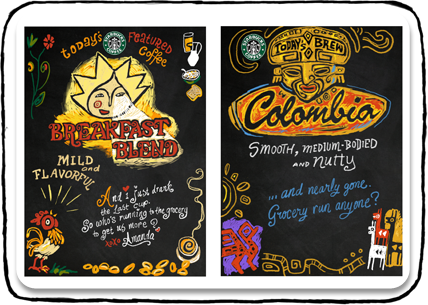 today's Featured
Coffee
BREAKFAST
BLEND
MILD
and
FLAVORFUL
And i just drank
the last cup.
So who's running to the grocery
to get us more?
xoxo Amanda
TODAY'S BREW
Colombia
SMOOTH, MEDIUM-BODIED
AND nutty
...and nearly gone.
Grocery run anyone?